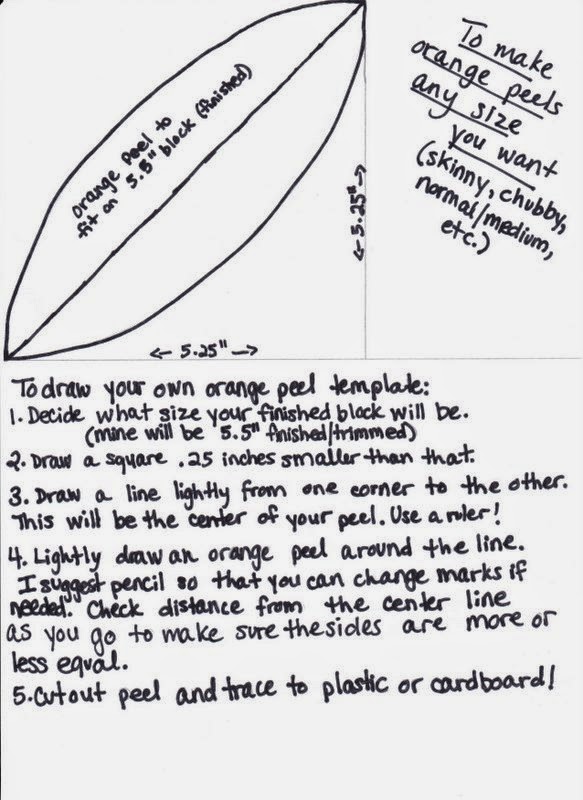 orange peel to
fit on 5.5" block (finished)
To make
orange peels
any size
you want
(skinny, chubby,
normal/medium,
etc.)
← 5.25" →
← 5.25" →
To draw your own orange peel template:
1. Decide what size your finished block will be.
(mine will be 5.5" finished/trimmed)
2. Draw a square .25 inches smaller than that.
3. Draw a line lightly from one corner to the other.
This will be the center of your peel. Use a ruler!
4. Lightly draw an orange peel around the line.
I suggest pencil so that you can change marks if
needed. Check distance from the center line
as you go to make sure the sides are more or
less equal.
5. Cut out peel and trace to plastic or cardboard!